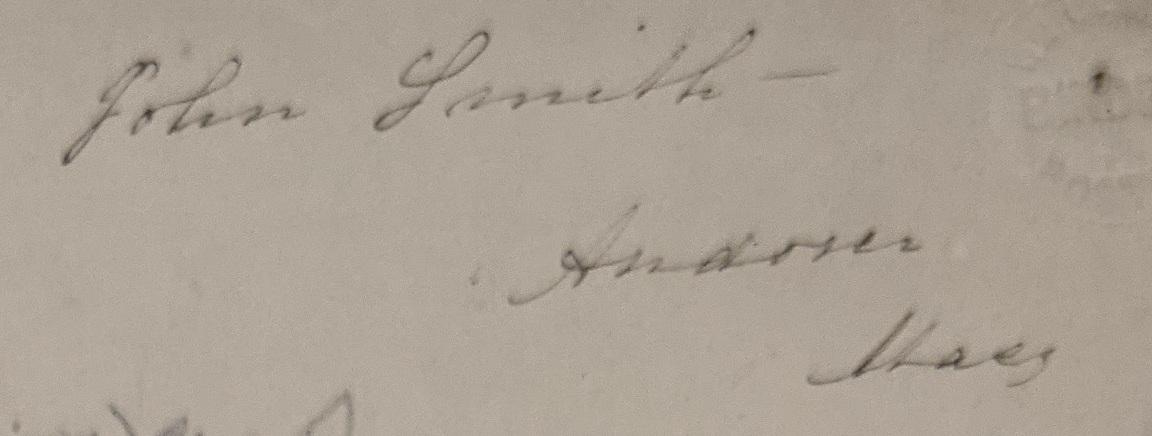 John Smith —
Andover
Mass